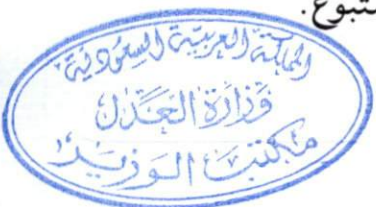 متبوع.
المملكة العربية السعودية
وزارة العدل
مكتب الوزير